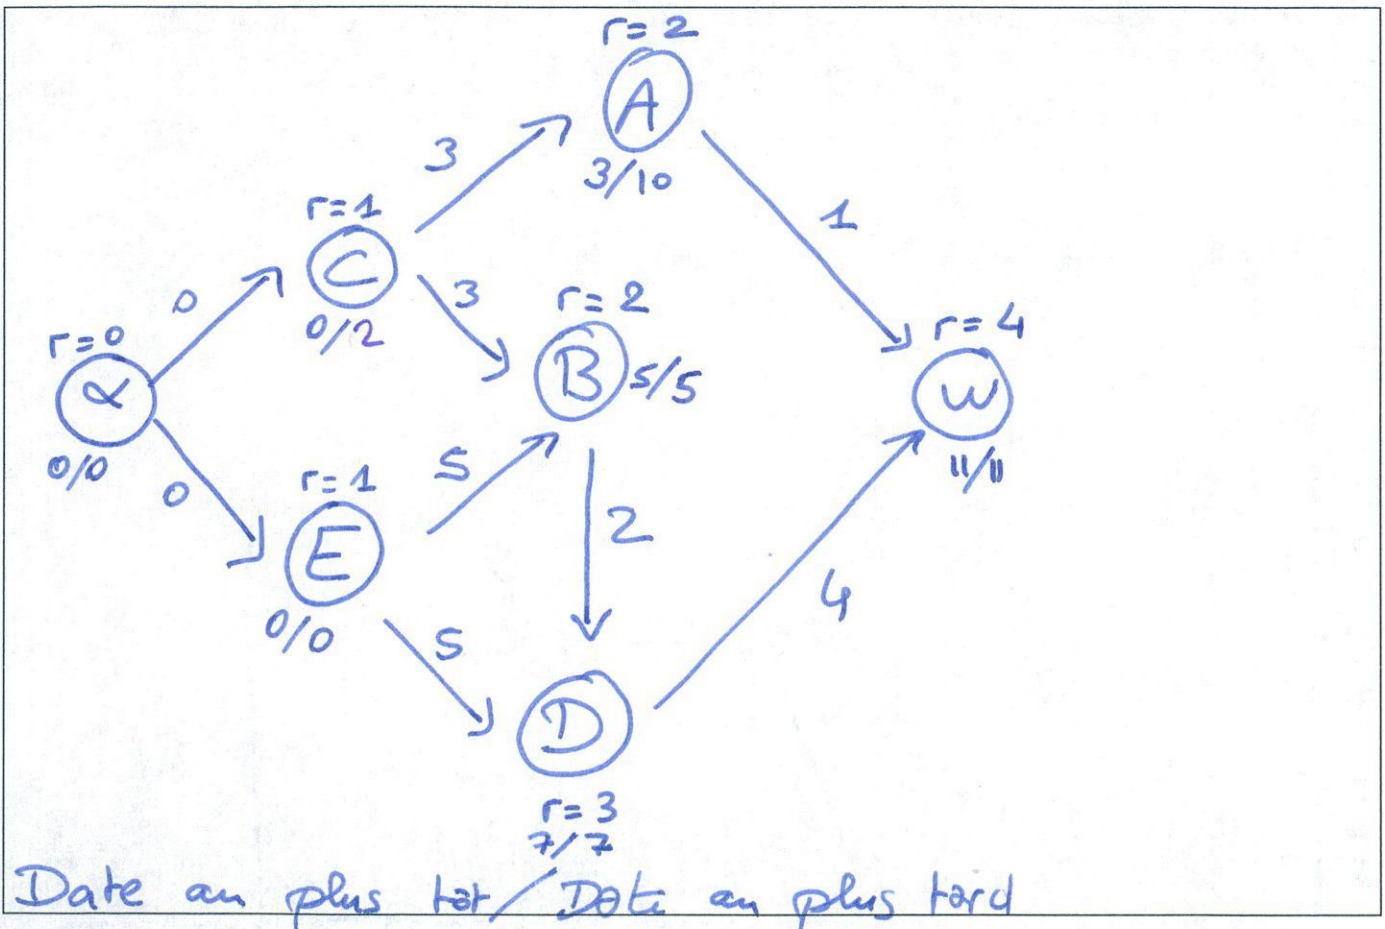 r=2
A
3/10
3
1
r=1
C
0/2
0
3
r=2
B
5/5
r=0
α
0/0
r=4
ω
11/11
0
5
2
r=1
E
0/0
5
4
D
r=3
7/7
Date au plus tôt / Date au plus tard